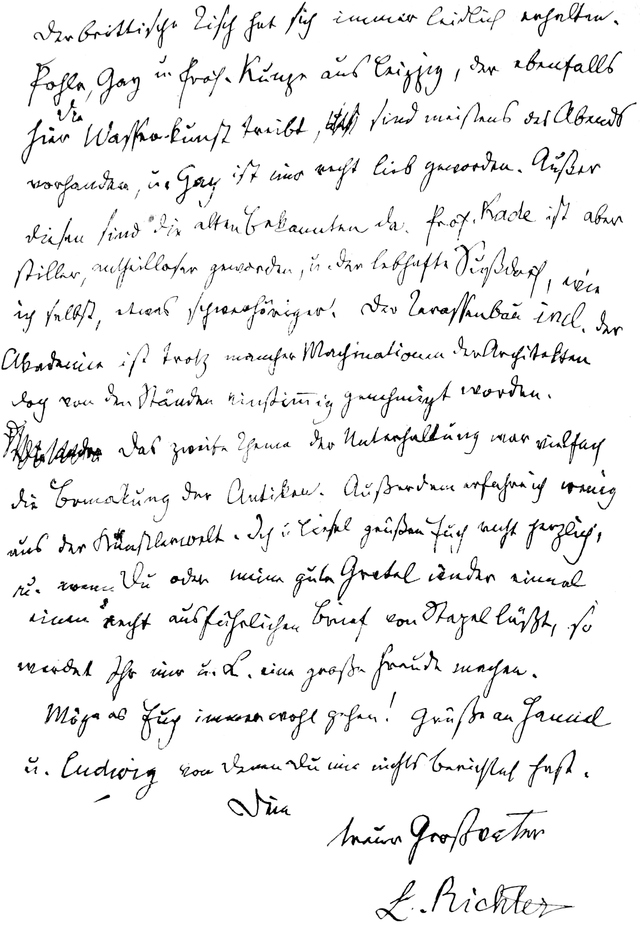 Der brittische Tisch hat sich immer leidlich erhalten.
Pohle, Gay u Prof. Kunze aus Leipzig, der ebenfalls
hier die Wasserkunst treibt, sind meistens des Abends
vorhanden, u. Gay ist uns recht lieb geworden. Außer
diesen sind die alten Bekannten da. Prof. Kade ist aber
stiller, antheilloser geworden, u. der lebhafte Sußdorf, wie
ich selbst, etwas schwerhöriger. Der Terassenbau incl. der
Akademie ist trotz mancher Machinationen der Architekten
doch von den Ständen einstimmig genehmigt worden.
Das zweite Thema der Unterhaltung war vielfach
die Bemalung der Antiken. Außerdem erfahre ich wenig
aus der Künstlerwelt. Ich u Liesel grüßen Euch recht herzlich,
u. wenn Du oder meine gute Gretel wieder einmal
einen recht ausführlichen Brief von Stapel läßt, so
werdet Ihr mir u. L. eine große Freude machen.
Möge es Euch immer wohl gehen! Grüße an
u. Ludwig von denen Du mir nichts berichtet hast.
Dein
treuer Großvater
L. Richter